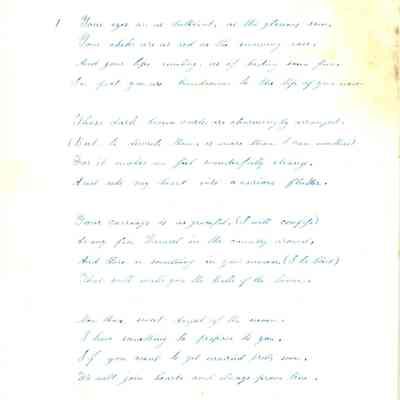 1 Your eyes are as brilliant, as the glorious sun,
Your cheeks are as red as the evening rose.
And your lips smiling, as if
In fact you are handsome to the tip of your nose.
Those dark brown curls are charmingly arranged.
(But to describe them, is more than I can
For it makes me feel wonderfully
And sets my heart into a flutter.
Your carriage is as graceful, (I will confess)
As any fine in the country around,
And there is something in your manner (
That will make you the belle of the
Now then, sweet Angel of the
I have something to propose to you.
If you want to get married
We will join hearts and always prove true.